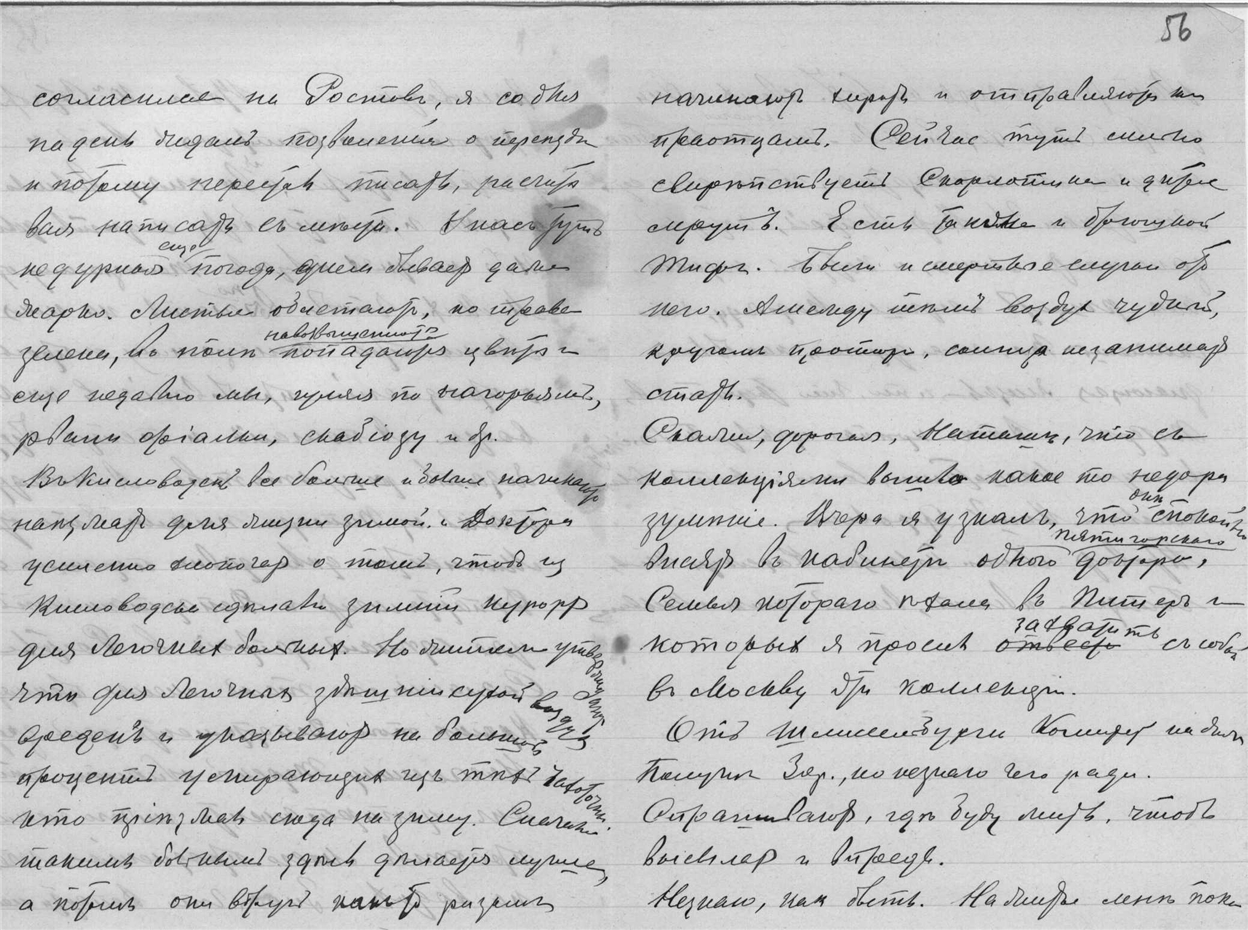 согласился на Ростовъ, я со дня
на день ждалъ позволенія о переѣздѣ
и потому пересталъ писать, расчиты
валъ написать съ мѣста. У насъ тутъ
недурная еще погода, днемъ бываетъ даже
жарко. Листья облетаютъ, но трава
зелена, во полѣ попадаются цвѣты и
еще недавно мы, гуляя по нагорьямъ,
рвали фіалки, скабіозу и др.
Въ Кисловодскѣ все больше и больше начинаютъ
наѣзжать для жизни зимой. Доктора
усиленно хлопочатъ о томъ, чтобъ из
Кисловодска сдѣлать зимній курортъ
для легочныхъ больныхъ. Но жители утверждаютъ
что для легочныхъ здѣшній сухой воздухъ
вреденъ и указываютъ на большой
процентъ умирающихъ изъ тѣхъ чахоточн.
кто пріѣзжаетъ сюда на зиму. Сначала
такимъ больнымъ здѣсь дѣлается лучше,
а потомъ они вдругъ разомъ
56
начинаютъ хирѣть и отправляются къ
праотцамъ. Сейчас тутъ сильно
свирѣпствуетъ Скарлатина и дѣти
мрутъ. Есть также и брюшной
тифъ. Были и смертные случаи отъ
него. А между тѣмъ воздухъ чудный,
кругомъ просторъ, солнца не занимать
стать.
Скажи, дорогая, Наташѣ, что съ
коллекціями вышло какое то недора
зумѣніе. Вчера я узналъ, что они спокойно
висятъ въ кабинетѣ одного пятигорскаго доктора,
Семья котораго поѣхала въ Питеръ и
которыхъ я просилъ захватить съ собой
въ Москву эти коллекціи.
Отъ Шлиссельбургск. Комитета на дняхъ
Получилъ 30р., но не знаю чего ради.
Спрашиваютъ, гдѣ буду жить, чтобъ
высылать и впредь.
Не знаю, как быть. На житье меня пока